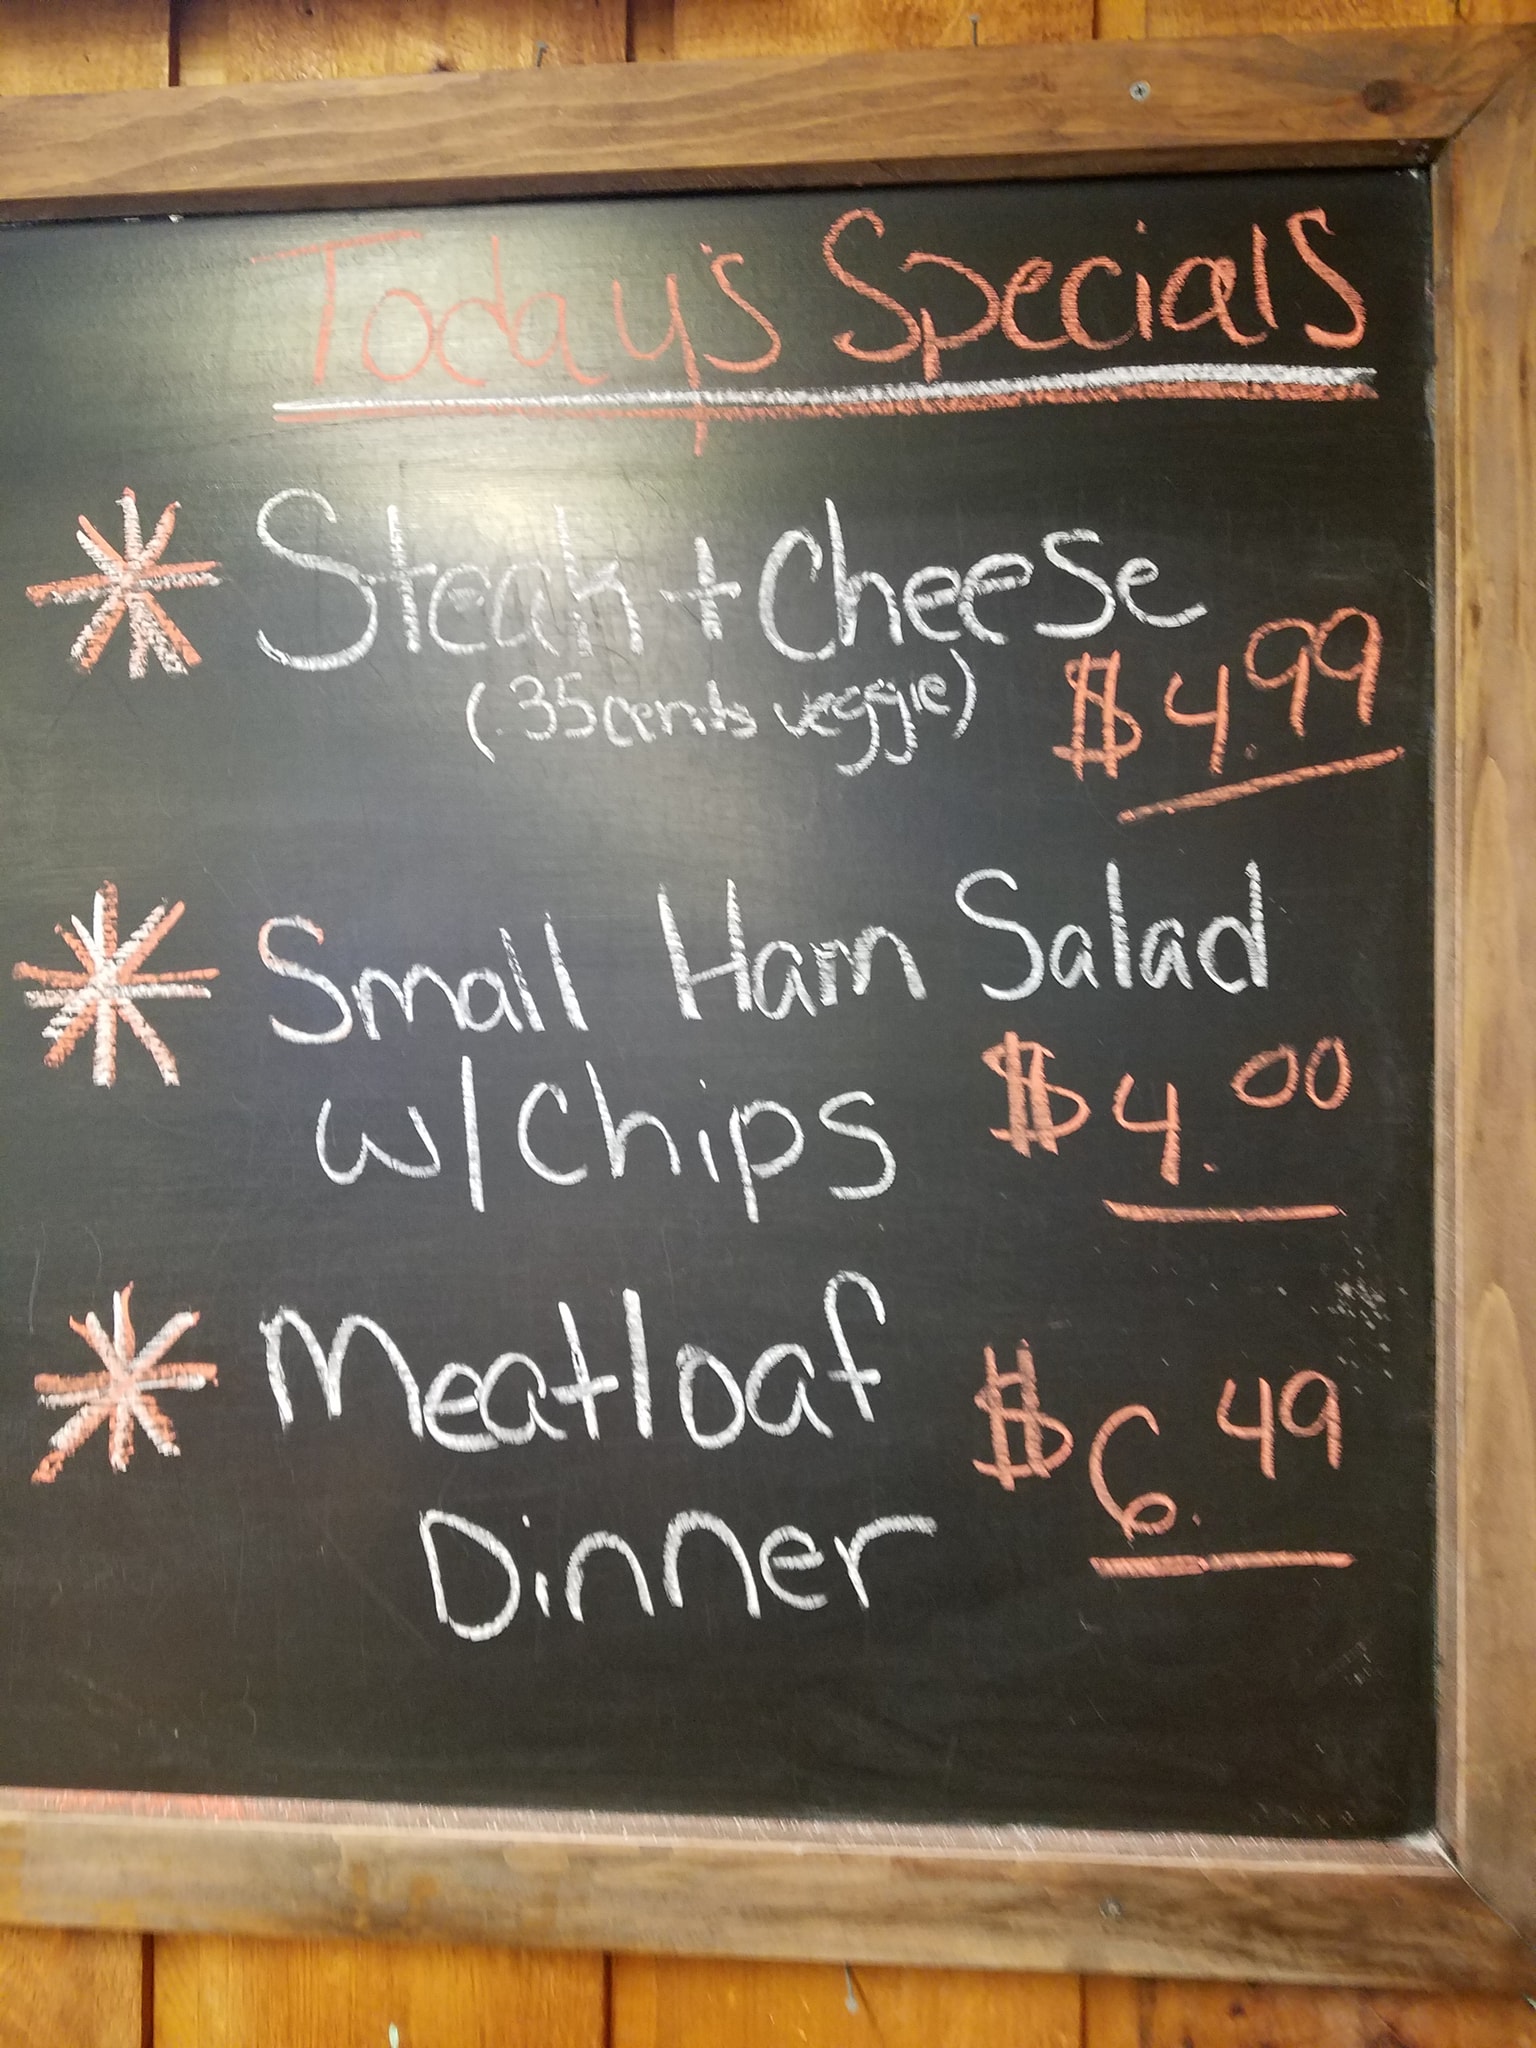 Today's Specials
Steak + Cheese
(.35 cents veggie) $4.99
Small Ham Salad
w/Chips $4.00
Meatloaf $6.49
Dinner